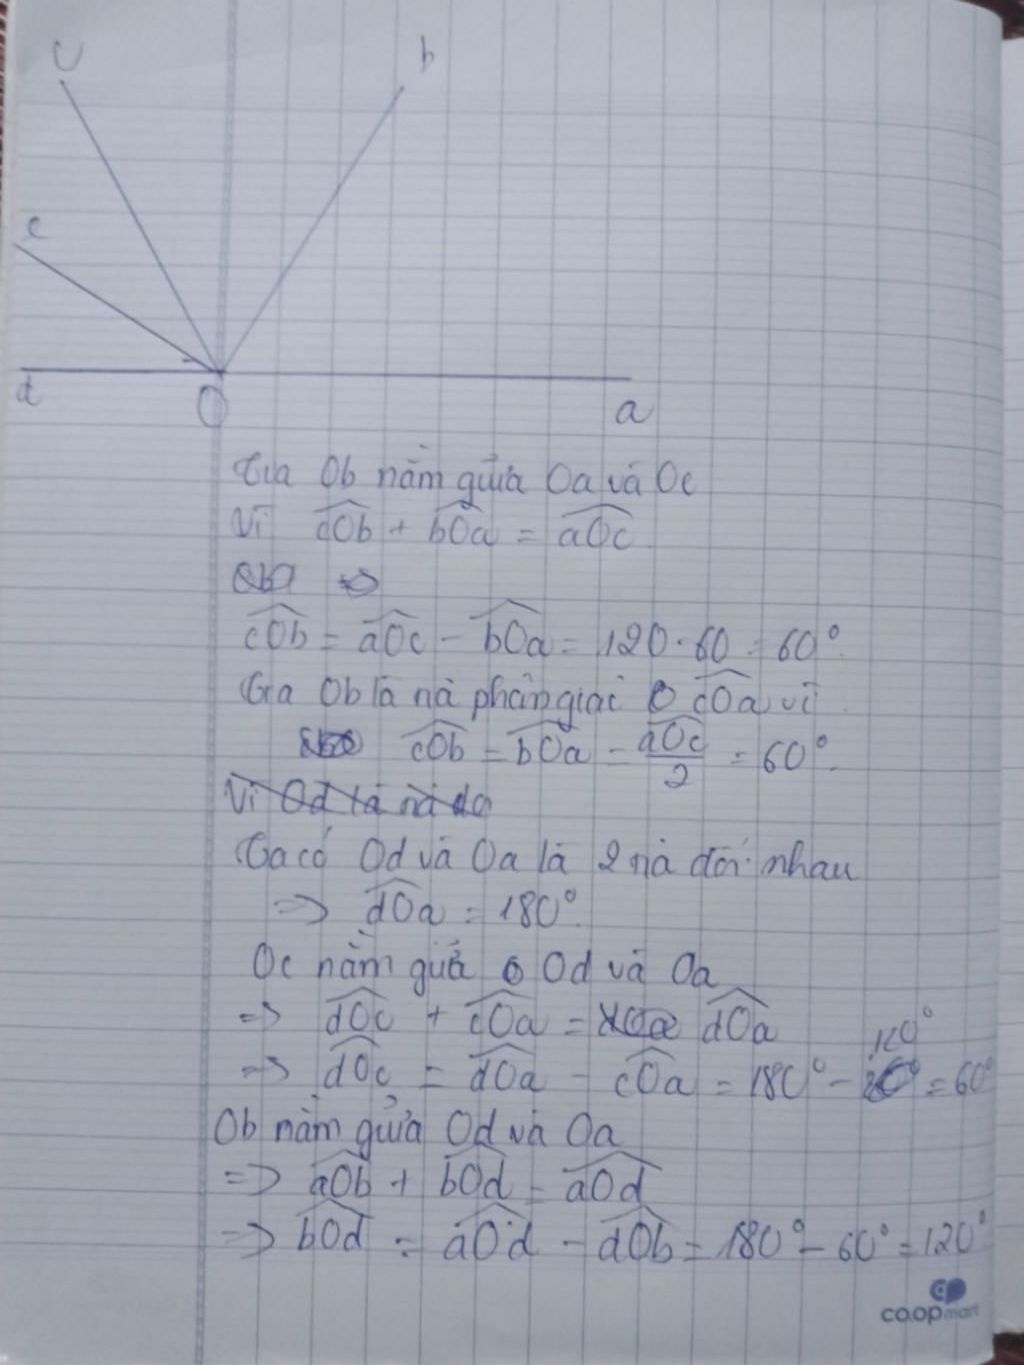 c
b
e
d
O
a
Tia Ob nằm giữa Oa và Oc
Vì cOb + bOa = aOc
⇒
cOb = aOc - bOa = 120 - 60 = 60°
Tia Ob là tia phân giác cOa vì
cOb = bOa = aOc/2 = 60°
Vì Od là tia đo
Ta có Od và Oa là 2 tia đối nhau
=> dOa = 180°
Oc nằm giữa Od và Oa
=> dOc + cOa = dOa
=> dOc = dOa - cOa = 180° - 120° = 60°
Ob nằm giữa Od và Oa
=> aOb + bOd = aOd
=> bOd = aOd - aOb = 180° - 60° = 120°
co.opmart